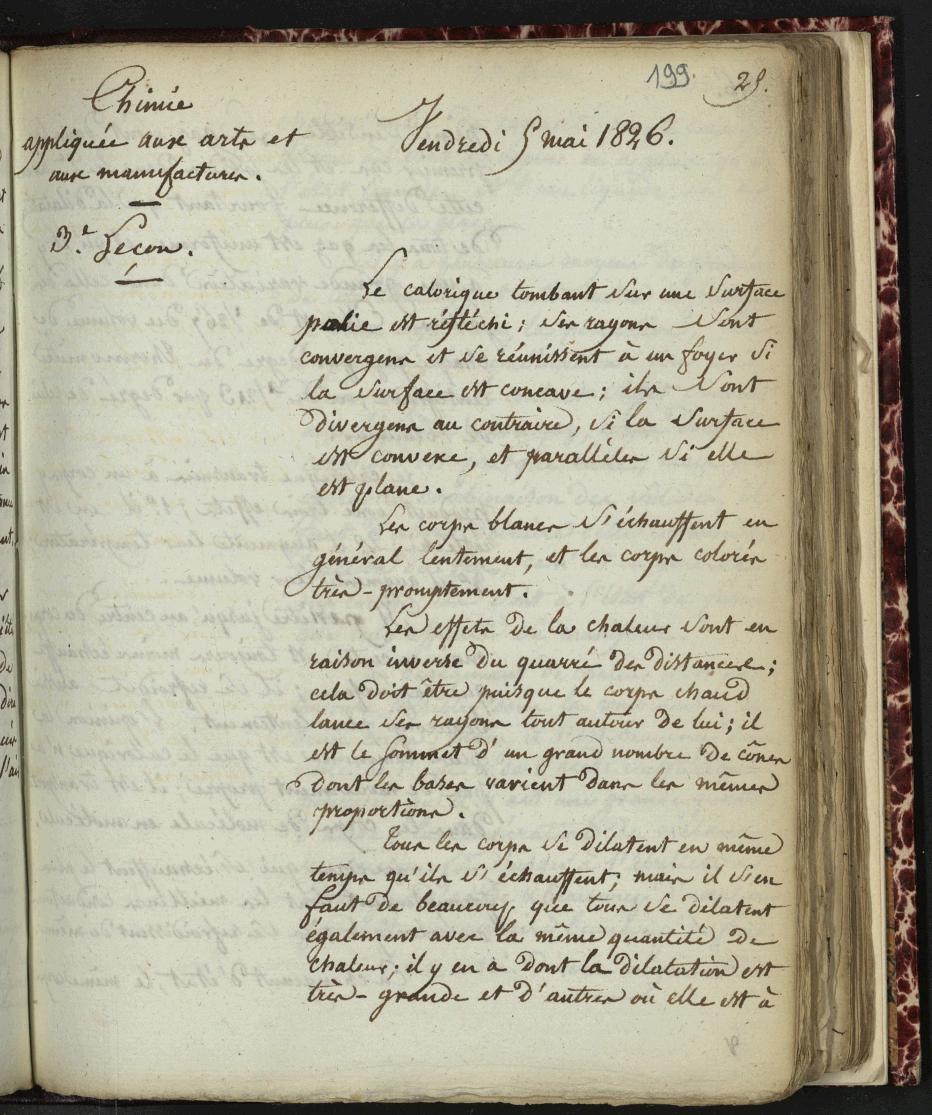 199. 25.
Chimie
appliquée aux arts et
aux manufactures.
Vendredi 5 mai 1826.
3.e Leçon.
Le calorique tombant sur une surface
polie est réfléchi; ses rayons sont
convergens et se réunissent à un foyer si
la surface est concave; ils sont
divergens au contraire, si la surface
est convexe, et parallèles si elle
est plane.
Les corps blancs s'échauffent en
général lentement, et les corps colorés
très-promptement.
Les effets de la chaleur sont en
raison inverse du quarré des distances;
cela doit être puisque le corps chaud
lance ses rayons tout autour de lui; il
est le sommet d'un grand nombre de cônes
dont les bases varient dans les mêmes
proportions.
Tous les corps se dilatent en même
temps qu'ils s'échauffent; mais il s'en
faut de beaucoup que tous se dilatent
également avec la même quantité de
chaleur; il y en a dont la dilatation est
très-grande et d'autres où elle est à